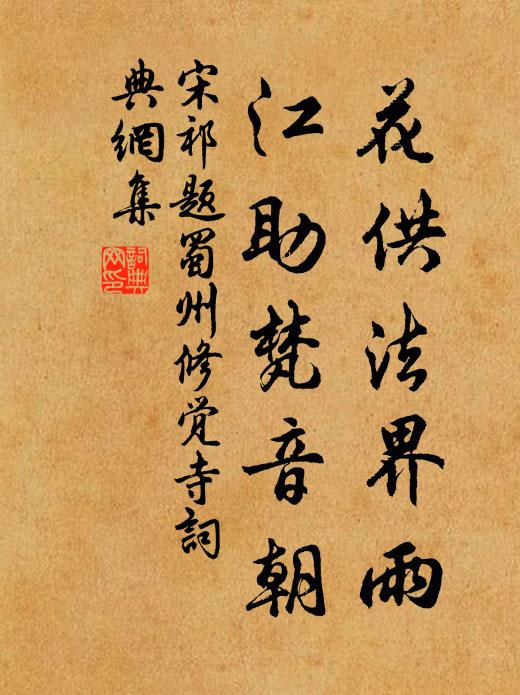 花供法界雨
江助梵音朝
宋祁題蜀州修觉寺詞
典網集
詞典網印